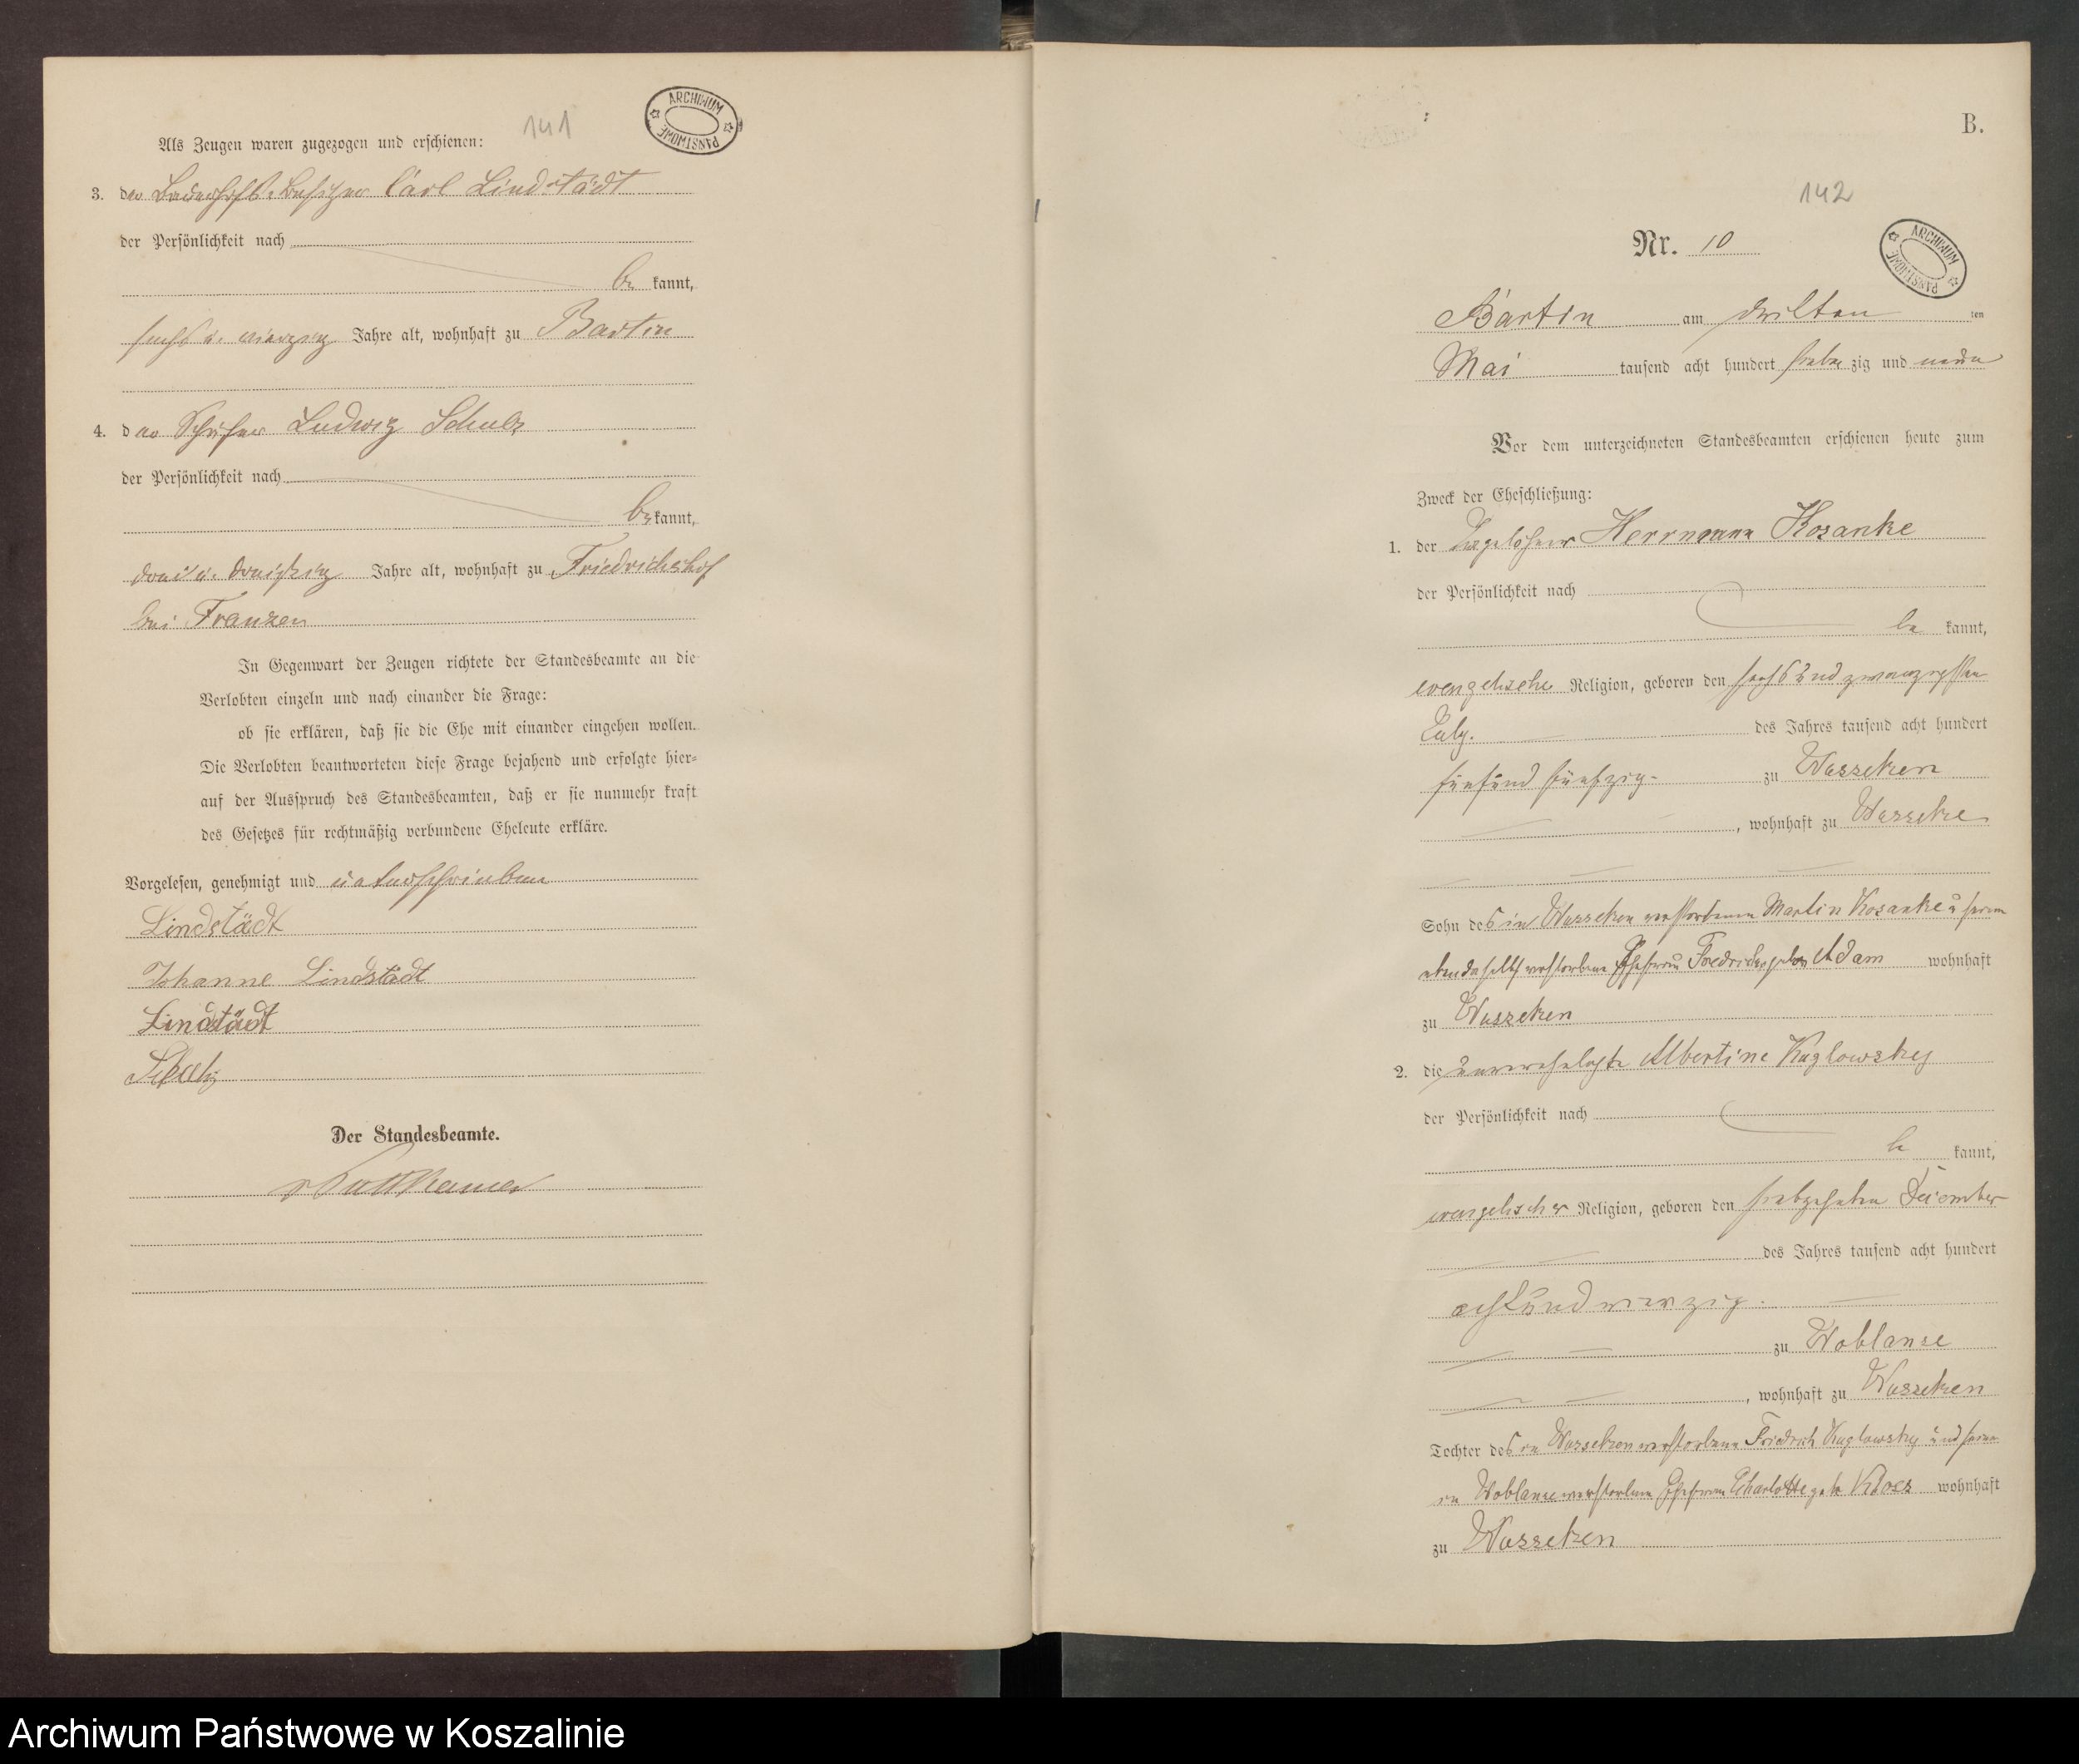 141
ARCHIWUM PAŃSTWOWE
Als Zeugen waren zugezogen und erschienen:
3. der Carl Lindstädt
der Persönlichkeit nach
be kannt,
sechs u. vierzig Jahre alt, wohnhaft zu Bartin
4. der Schäfer Ludwig Schulz
der Persönlichkeit nach
be kannt,
drei u. dreißig Jahre alt, wohnhaft zu Friedrichshof
bei Franzen
In Gegenwart der Zeugen richtete der Standesbeamte an die
Verlobten einzeln und nach einander die Frage:
ob sie erklären, daß sie die Ehe mit einander eingehen wollen.
Die Verlobten beantworteten diese Frage bejahend und erfolgte hier-
auf der Ausspruch des Standesbeamten, daß er sie nunmehr kraft
des Gesetzes für rechtmäßig verbundene Eheleute erkläre.
Vorgelesen, genehmigt und unterschrieben
Lindstädt
Johanne Lindstädt
Lindstädt
Schulz
Der Standesbeamte.
B.
142
ARCHIWUM PAŃSTWOWE
Nr. 10
Bartin am dritten ten
Mai tausend acht hundert siebenzig und neun
Vor dem unterzeichneten Standesbeamten erschienen heute zum
Zweck der Eheschließung:
1. der Tagelöhner Herrmann Kosanke
der Persönlichkeit nach
be kannt,
evangelische Religion, geboren den sechsundzwanzigsten
July. des Jahres tausend acht hundert
fünfundfünfzig- zu Wusseken
, wohnhaft zu Wusseke
Sohn des in Wusseken verstorbenen Martin Kosanke u seiner
ebendaselbst verstorbene Ehefrau Friedricke geborn Adam wohnhaft
zu Wusseken
2. die unverehelichte Albertine Kuglowsky
der Persönlichkeit nach
be kannt,
evangelischer Religion, geboren den siebzehnten December
des Jahres tausend acht hundert
achtundvierzig.
zu Woblanse
, wohnhaft zu Wusseken
Tochter des in Wusseken verstorbene Friedrich Kuglowsky und seiner
in Woblanse verstorbene Ehefrau Charlotte geb wohnhaft
zu Wusseken
Archiwum Państwowe w Koszalinie